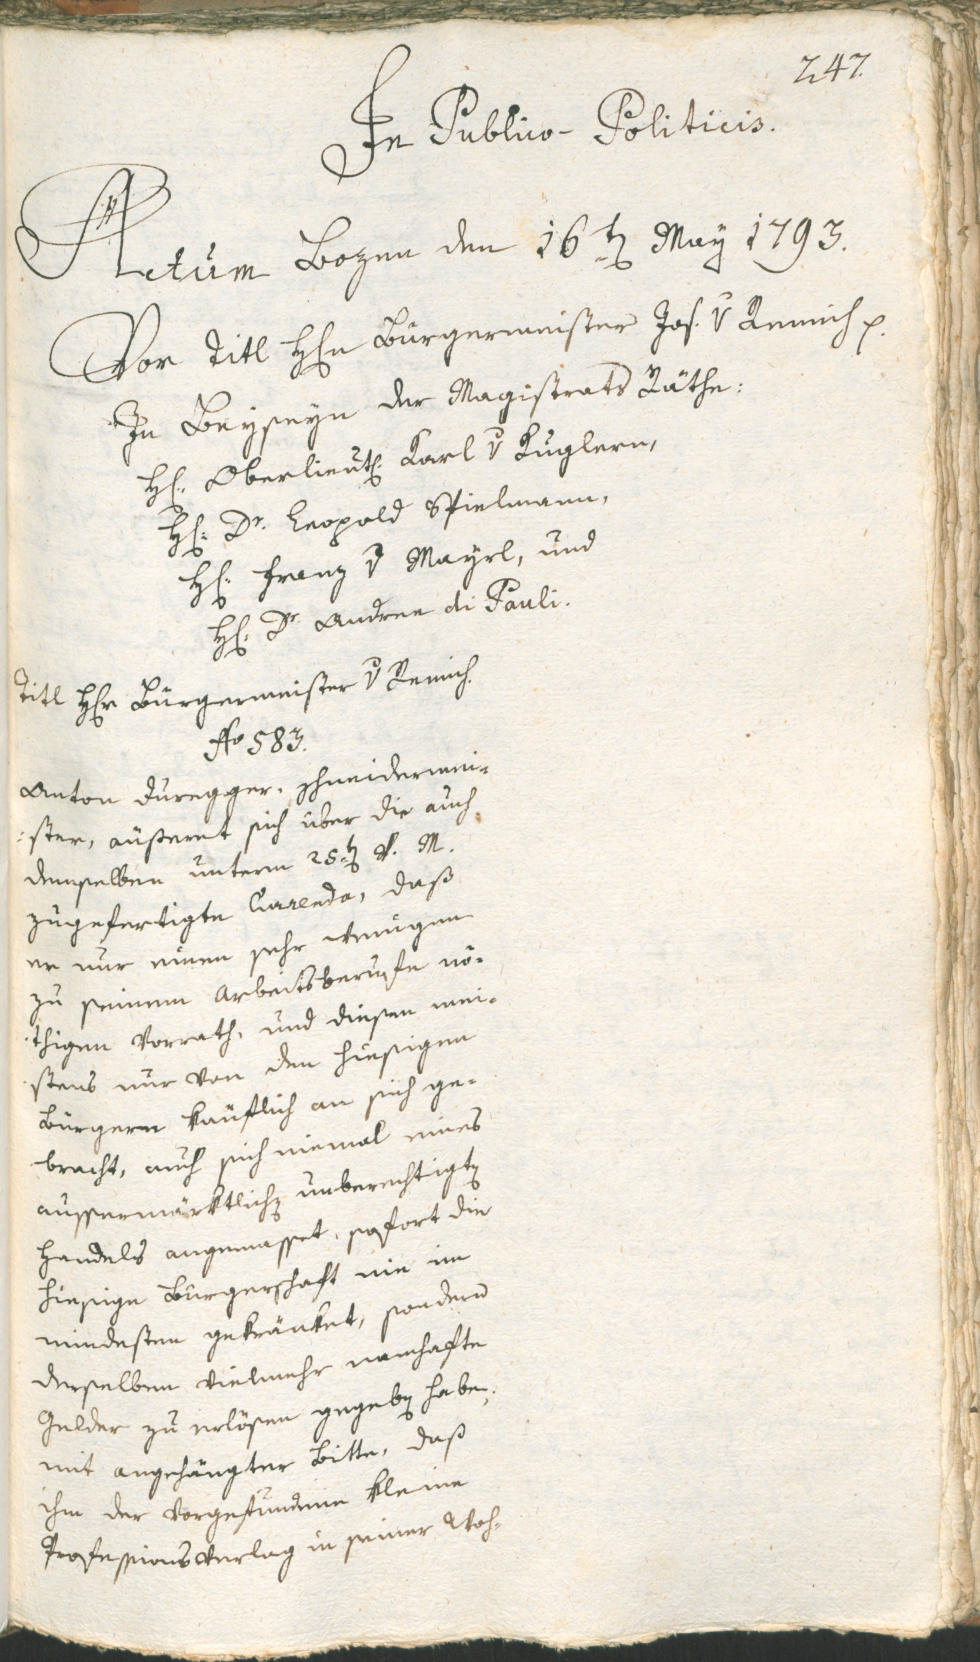 247.
In Publico-Politicis.
Actum Bozen den 16t May 1793.
Vor Titl Hn Bürgermeister Jos. v Remich p.
In Beyseyn der Magistrats Räthe:
H: Oberlieut: Karl v Kuglern,
H: Dr. Leopold Spielmann,
H: Franz v Mayrl, und
H: Dr Andree di Pauli.
Titl Hr Bürgermeister v Remich.
No 583.
Anton Duregger, Schneidermei-
ster, äußeret sich über die auch
demselben unterm 25t v. M.
zugefertigte Currenda, daß
er nur einen sehr wenigen
zu seinem Arbeitsberufe nö-
thigen Vorrath, und diesen mei-
stens nur von den hiesigen
Bürgern käuflich an sich ge-
bracht, auch sich niemal eines
aussermärktlich unberechtigt
Handels angemasset, sofort die
hiesige Bürgerschaft nie im
mindesten gekränket, sondern
derselben vielmehr namhafte
Gelder zu erlösen gegeb habe,
mit angehängter Bitte, daß
ihm der vorgefundene kleine
Professionsverlag in seiner Woh-